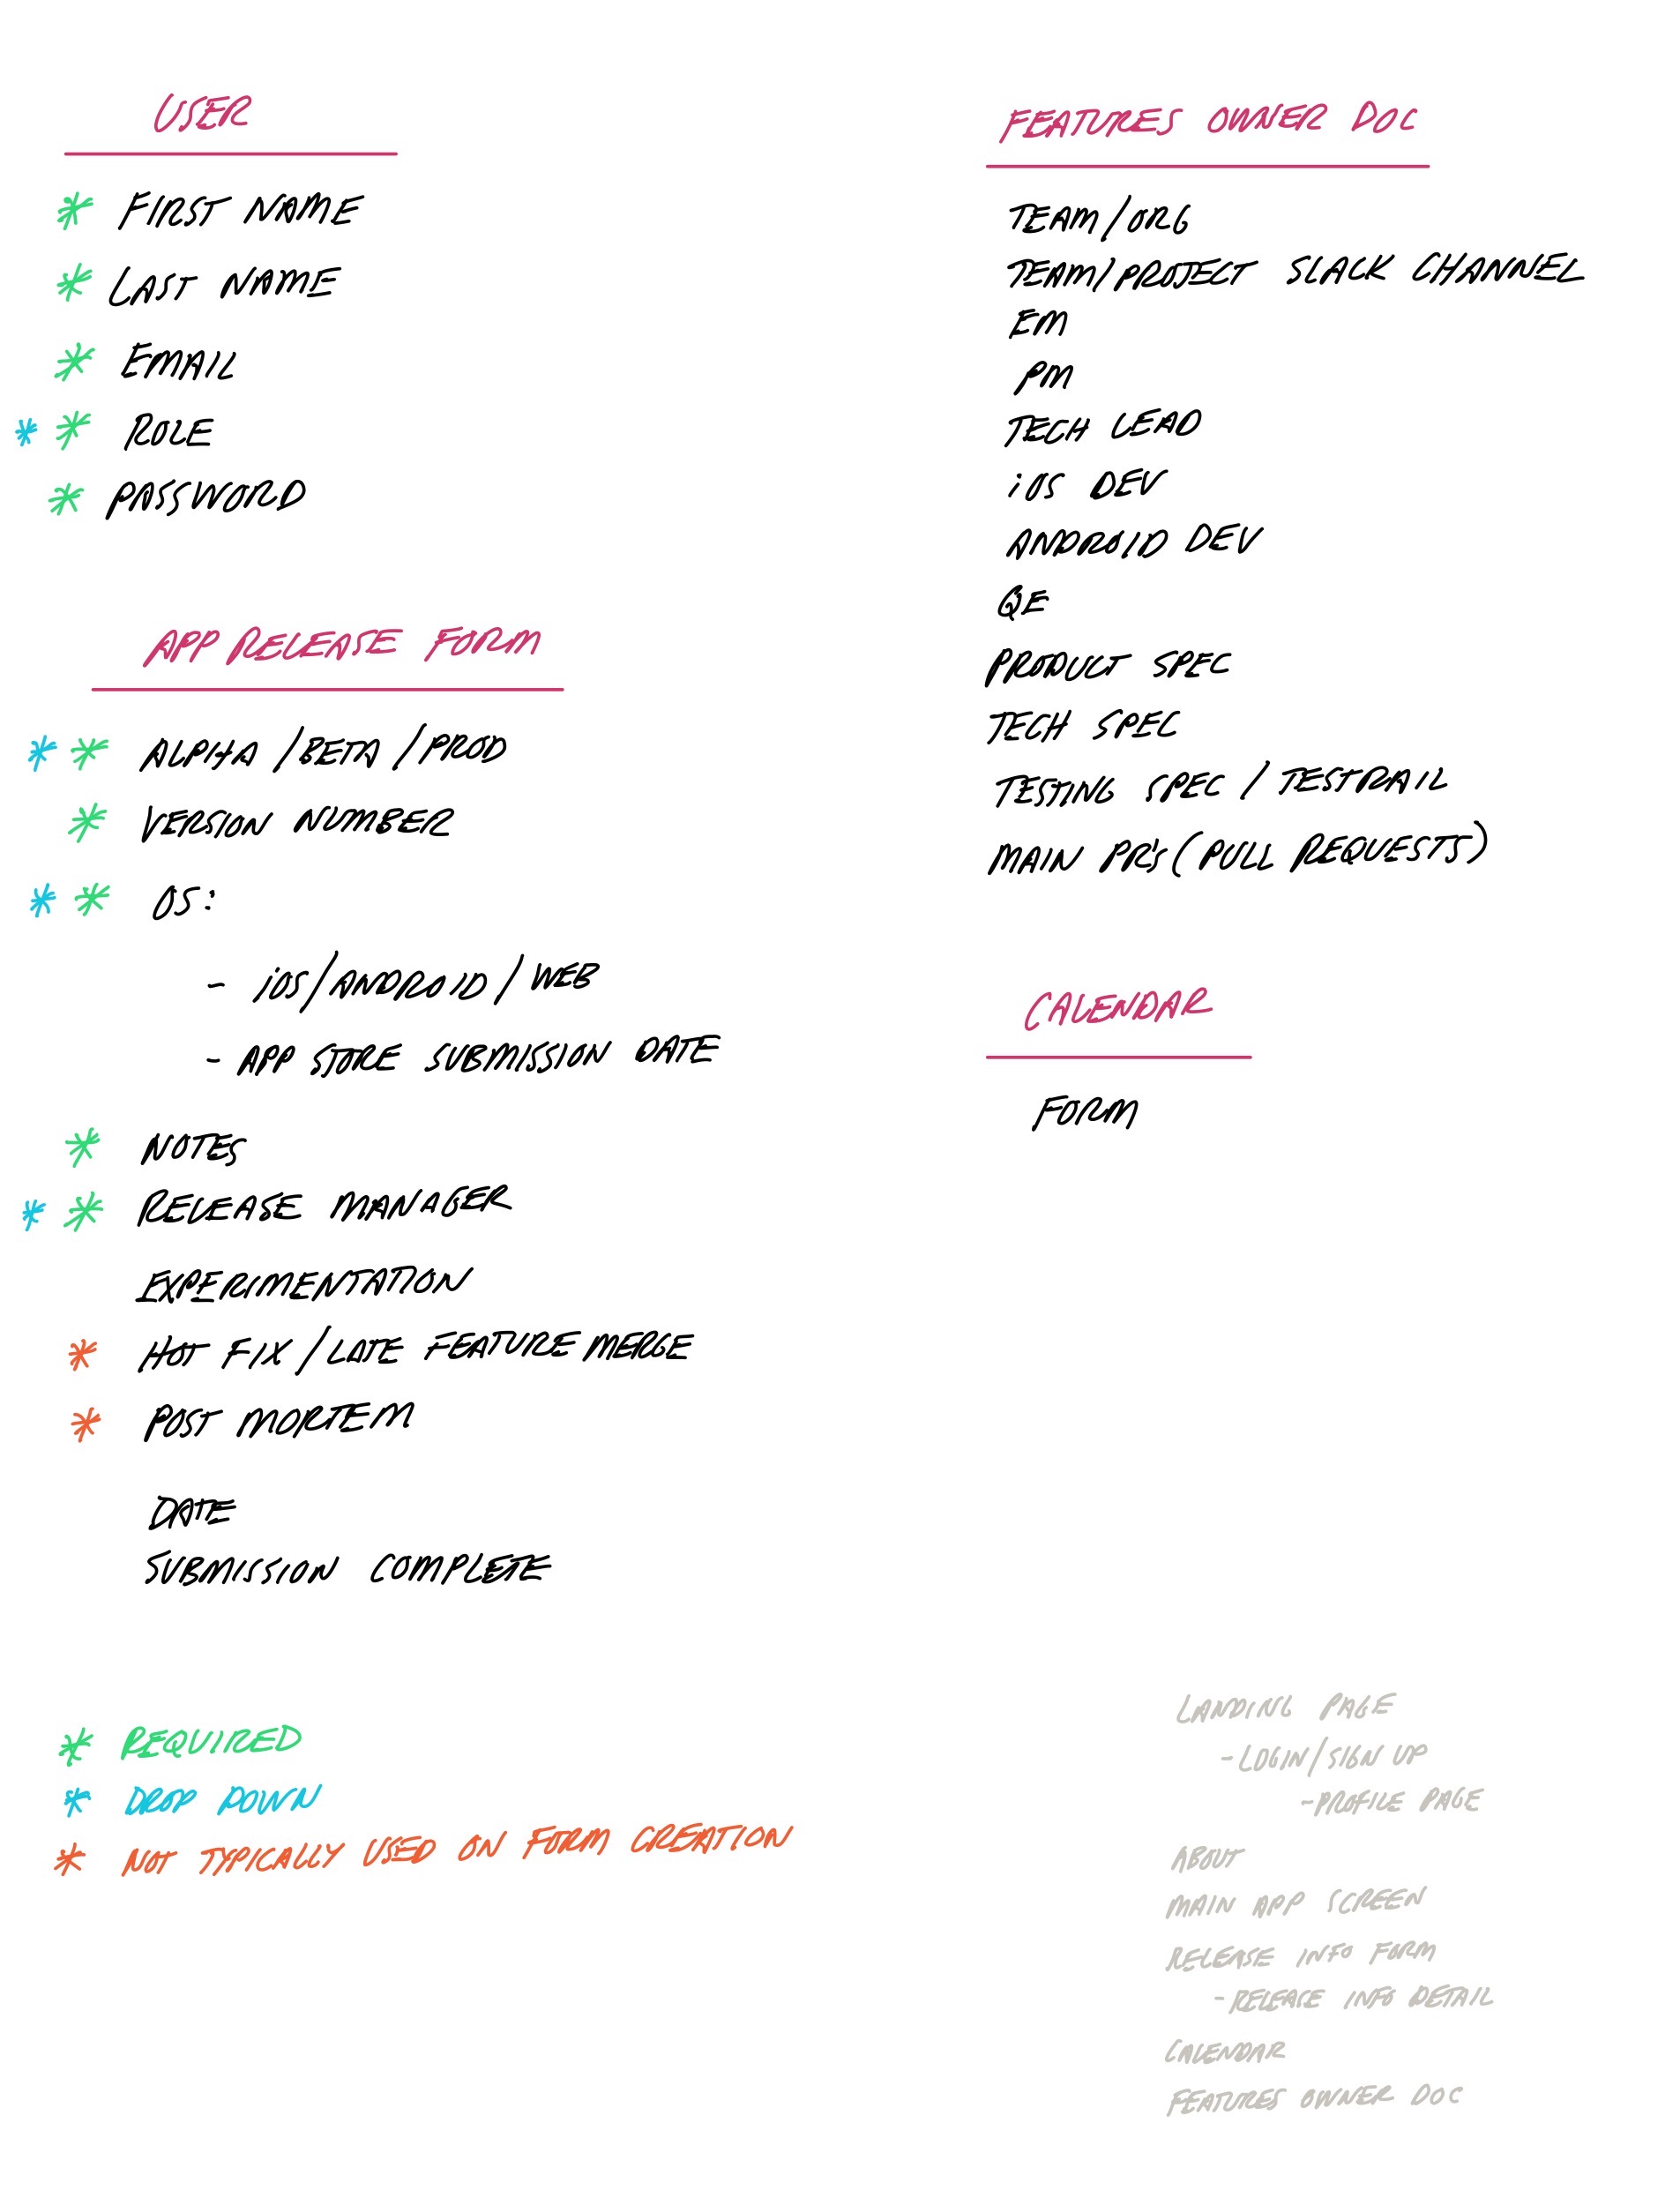 USER
* FIRST NAME
* LAST NAME
* EMAIL
* * ROLE
* PASSWORD
APP RELEASE FORM
* * ALPHA / BETA / PROD
* VERSION NUMBER
* * OS:
- iOS / ANDROID / WEB
- APP STORE SUBMISSION DATE
* NOTES
* * RELEASE MANAGER
EXPERIMENTATION
* HOT FIX / LATE FEATURE MERGE
* POST MORTEM
DATE
SUBMISSION COMPLETE
* REQUIRED
* DROP DOWN
* NOT TYPICALLY USED ON FORM CREATION
FEATURES OWNER DOC
TEAM/ORG
TEAM/PROJECT SLACK CHANNEL
EM
PM
TECH LEAD
iOS DEV
ANDROID DEV
QE
PRODUCT SPEC
TECH SPEC
TESTING SPEC / TESTRAIL
MAIN PR'S (PULL REQUESTS)
CALENDAR
FORM
LANDING PAGE
- LOGIN/SIGN UP
- PROFILE PAGE
ABOUT
MAIN APP SCREEN
RELEASE INFO FORM
- RELEASE INFO DETAIL
CALENDAR
FEATURES OWNER DOC